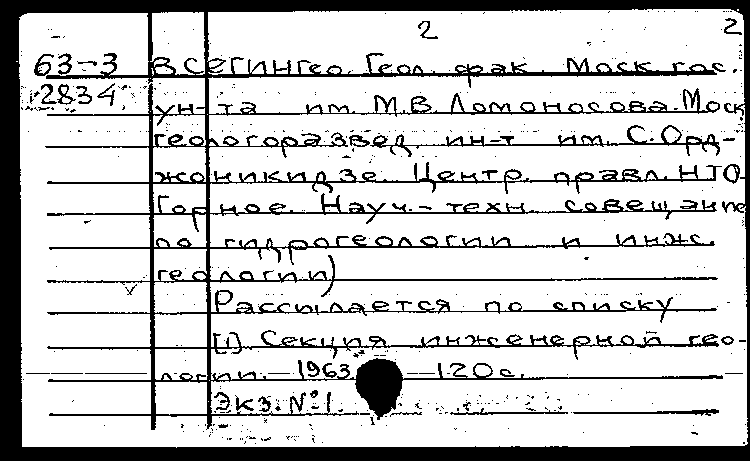 2 2
63-3 ВСЕГИНГео. Геол. фак. Моск. гос.
2834 ун-та им. М.В. Ломоносова. Моск
геологоразвед. ин-т им. С. Орд-
жоникидзе. Центр. правл. НТО
Горное. Науч.-техн. совещание
по гидрогеологии и инж.
геологии)
Рассылается по списку
[1]. Секция инженерной гео-
логии. 1963 120с.
Экз. №1.